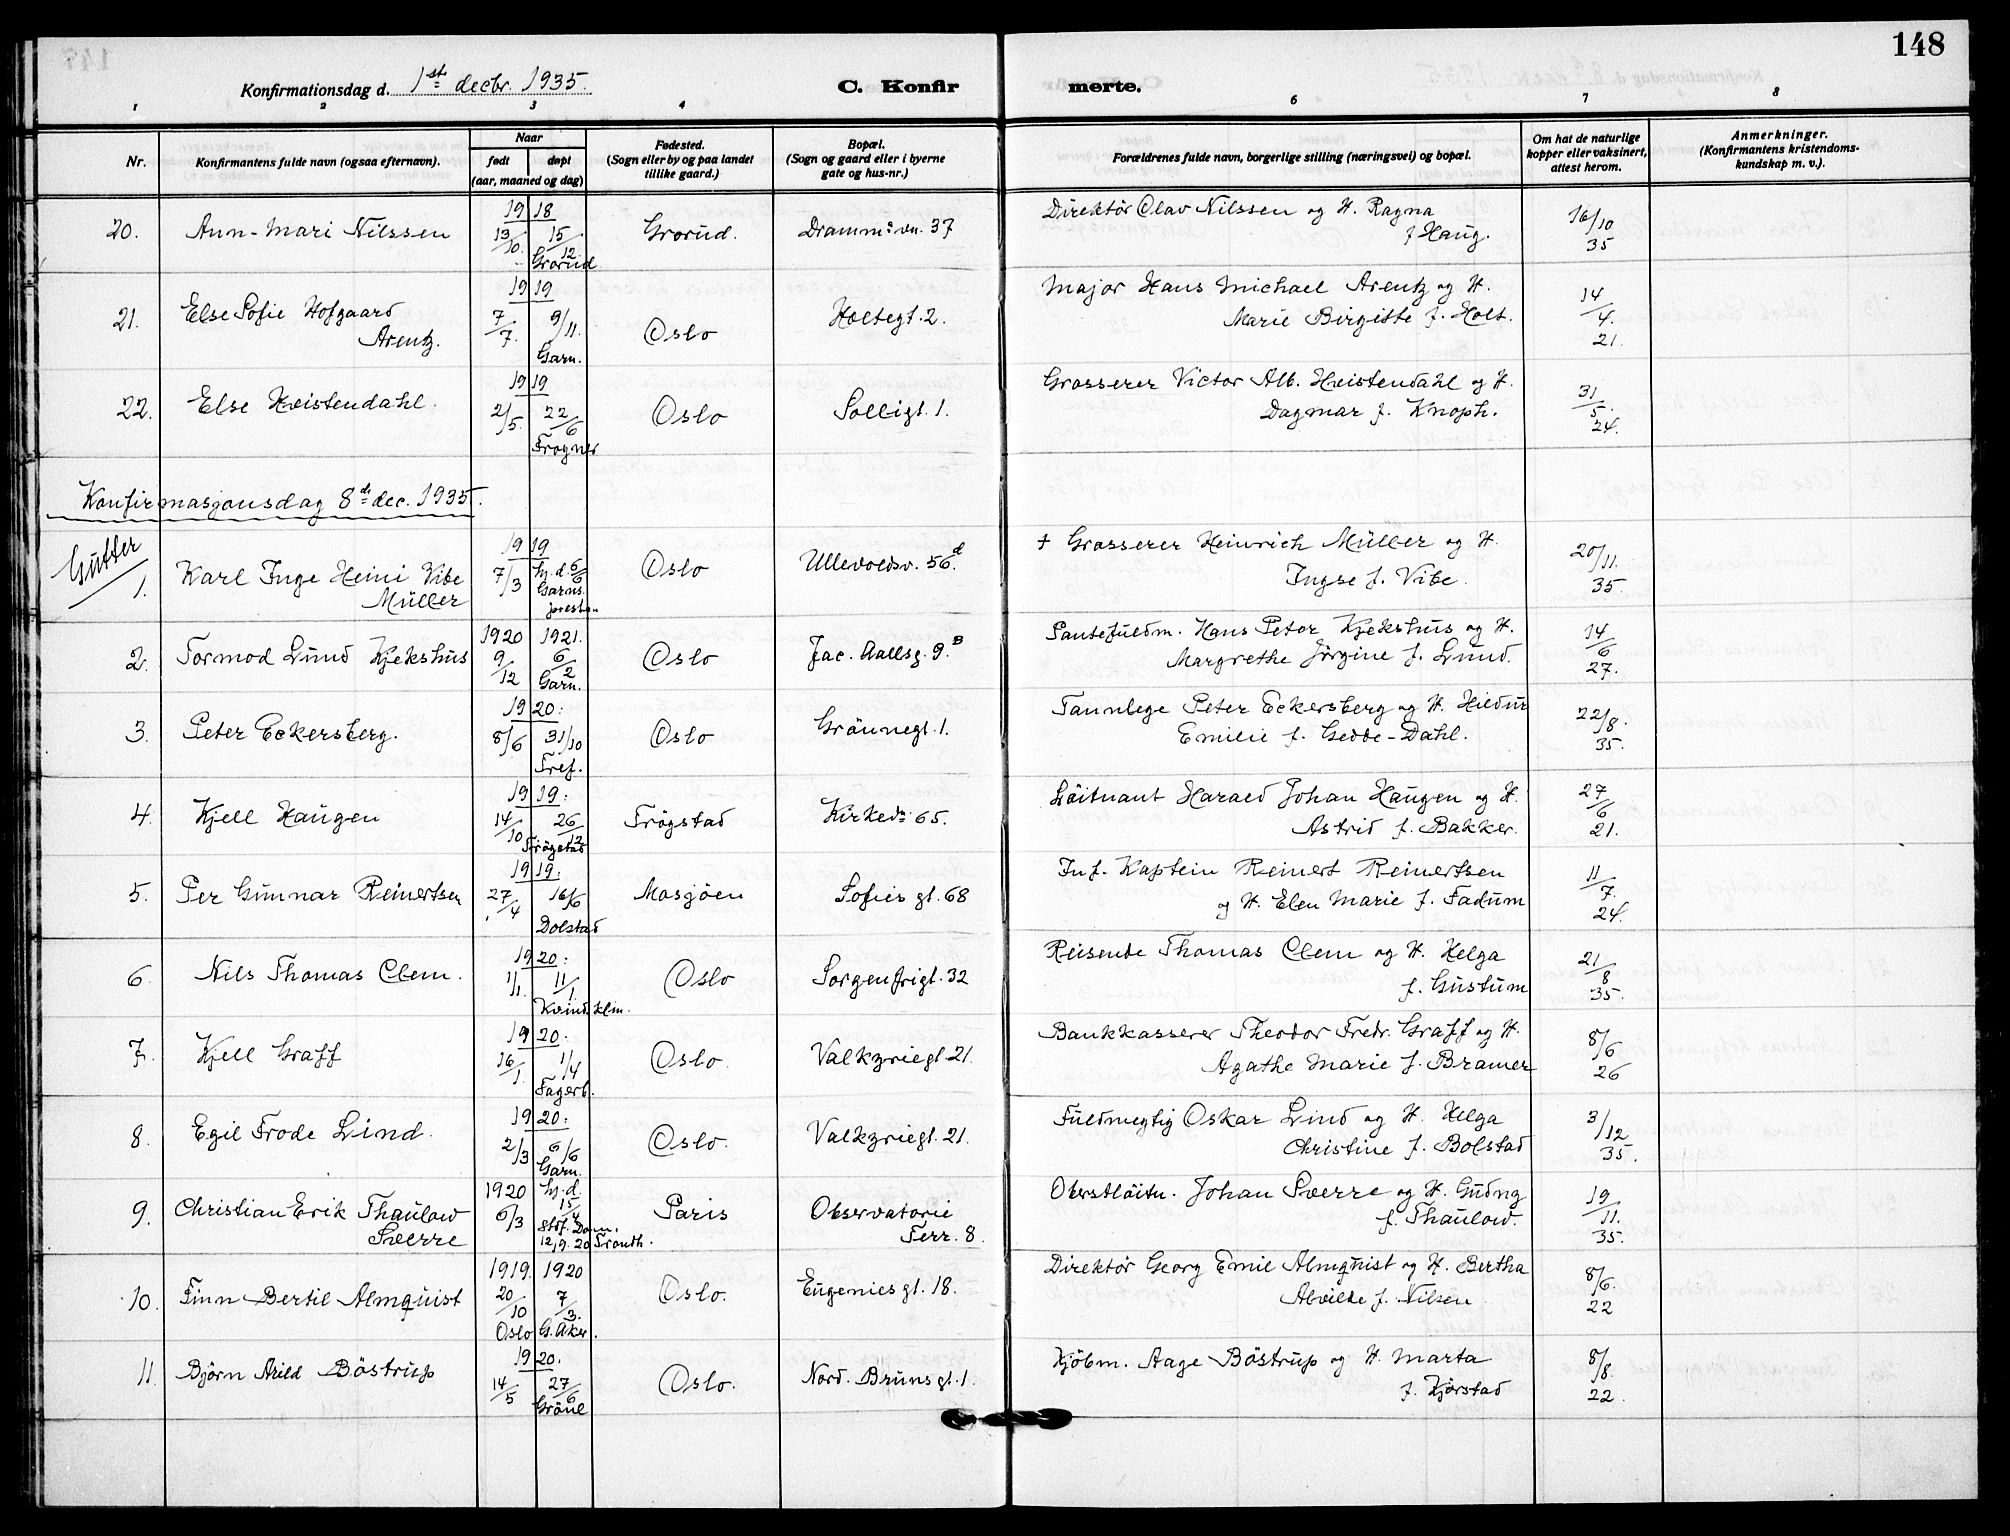 148
Konfirmationsdag d. 1ste decbr. 1935.
C. Konfirmerte.
1 2 3 4 6 7 8
Nr.
Konfirmantens fulde navn (ogsaa efternavn).
Naar
født døpt
(aar, maaned og dag)
Fødested.
(Sogn eller by og paa landet
tillike gaard.)
Bopæl.
(Sogn og gaard eller i byerne
gate og hus-nr.)
Forældrenes fulde navn, borgerlige stilling (næringsvei) og bopæl.
Om hat de naturlige
kopper eller vaksinert,
attest herom.
Anmerkninger.
(Konfirmantens kristendoms-
kundskap m. v.).
20. Ann-Mari Nilssen 1918 13/10. 15/12. Grorud Grorud. Dramm:vn. 37 Direktör Olav Nilssen og H. Ragna
f Haug. 16/10 35
21. Else Sofie Hofgaard
Arentz. 1919 7/7. 9/11. Garn. Oslo Holtegt. 2. Major Hans Michael Arentz og H.
Marie Birgitte f. Holt. 14/4. 21.
22. Else Hvistendahl. 1919 2/5. 22/6 Frogner Oslo Solligt. 1. Grosserer Victor Alb. Hvistendahl og H.
Dagmar f. Knoph. 31/5. 24.
Konfirmasjonsdag 8de dec. 1935.
Gutter
1. Karl Inge Heini Vibe
Müller 1919 7/3 hj. d. 6/6 Garns. presten Oslo Ullevoldsv. 56d. † Grosserer Heinrich Müller og H.
Ingse f. Vibe. 20/11. 35.
2. Tormod Lund Kjekshus 1920 9/12 1921. 6/2 Garn. Oslo Jac. Aallsg. 9.B Pantefuldm. Hans Peter Kjekshus og H.
Margrethe Jörgine f. Lund. 14/6 27.
3. Peter Eckersberg. 1920: 8/6 31/10 Tref. Oslo Grönnegt. 1. Tannlege Peter Eckersberg og H. Hildur
Emilie f. Gedde-Dahl. 22/8. 35.
4. Kjell Haugen 1919: 14/10 26/12 Trögstad Trögstad Kirkev: 65. Löitnant Harald Johan Haugen og H.
Astrid f. Bakker. 27/6 21.
5. Per Gunnar Reinertsen 1919: 27/4 16/6 Dolstad Mosjöen Sofies gt. 68 Inf. Kaptein Reinert Reinertsen
og H. Elen Marie f. Fadum 11/7. 24.
6. Nils Thomas Clem. 1920: 1/1. 11/1 Kvind.klin. Oslo Sorgenfrigt. 32 Reisende Thomas Clem og H. Helga
f. Gustum 21/8 35.
7. Kjell Graff 1920. 16/1. 1/4 Fagerb. Oslo. Valkyriegt. 21. Bankkasserer Theodor Fredr. Graff og H.
Agathe Marie f. Bramer 8/6 26
8. Egil Frode Lind. 1920: 2/3 6/6 Garn. Oslo. Valkyriegt. 21. Fuldmegtig Oskar Lind og H. Helga
Christine f. Bolstad 3/12 35.
9. Christian Erik Thaulow
Sverre 1920 6/3 hj. d. 15/4 stdf. Dom. 12/9. 20 Trondh. Paris Observatorie
Terr. 8. Oberstlöitn. Johan Sverre og H. Gudny
f. Thaulow. 19/11. 35.
10. Finn Bertil Almquist 1919. 20/10 Oslo 1920 7/3. G. Aker. Oslo. Eugeniesgt. 18. Direktör Georg Emil Almquist og H. Bertha
Alvilde f. Nilsen 8/6. 22
11. Björn Arild Böstrup 1920. 14/5 27/6 Grönl Oslo. Nord. Brunsgt. 1. Kjöbm. Aage Böstrup og H. Marta
f. Kjörstad 8/8. 22.